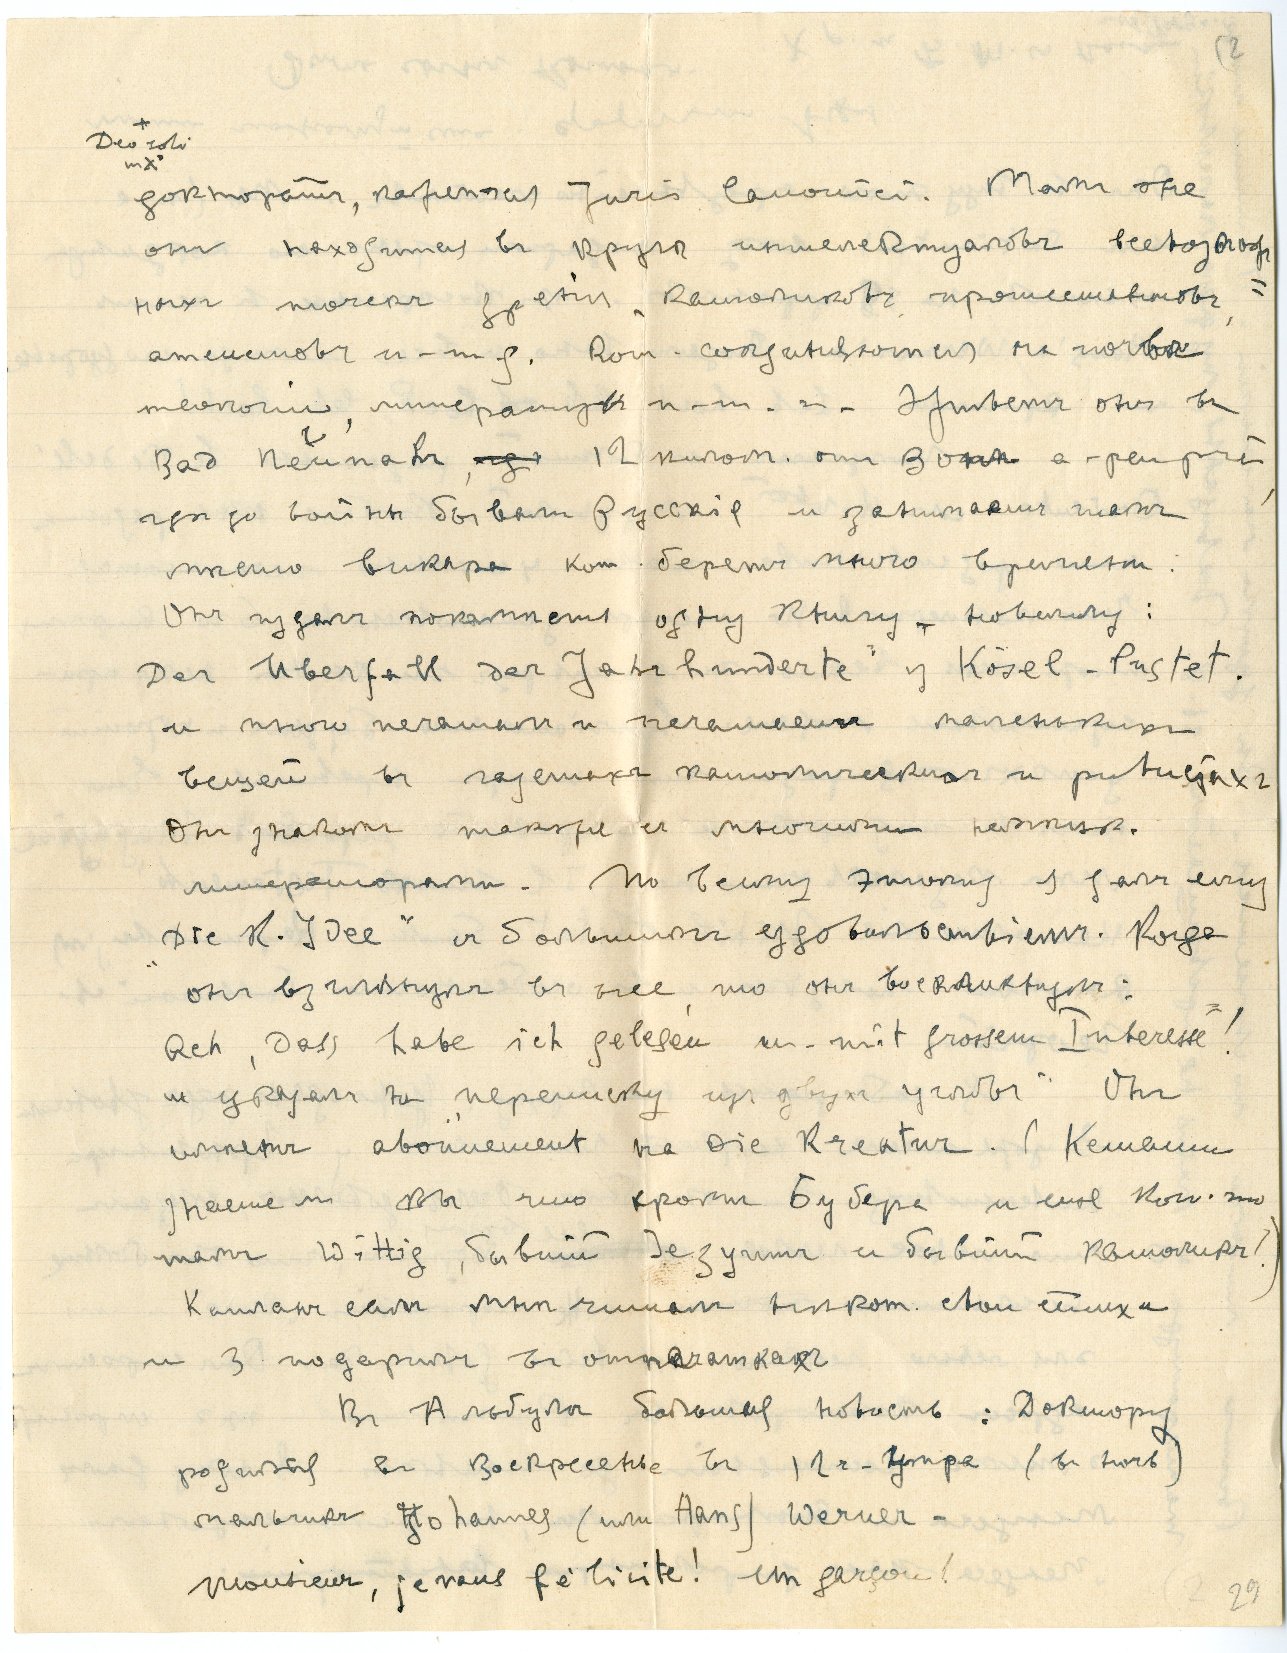 12
+
Deo soli
докторатъ, кажется Juris Canonici. Тамъ же
онъ находится въ кругѣ интелектуаловъ всевозмож
ныхъ точекъ зрѣнія, католиковъ, протестантовъ, =
атеистовъ и-т-д. кот. соединяются на почвѣ
теологіи, литературы и-т-п- Живетъ онъ въ
Bad Neuenahr, 12 килом. отъ Bonn
гдѣ до войны бывали Русскіе и занимаетъ тамъ
мѣсто викара кот. беретъ много времени.
Онъ издалъ покамѣстъ одну книгу - новеллу:
Der Überfall der Jahrhunderte" у Kösel - Pustet.
и много печаталъ и печатаетъ маленькихъ
вещей въ газетахъ католическихъ и
Онъ знакомъ также съ многими нѣмецк.
литераторами. По всему этому я далъ ему
"Die R. Idee" съ большимъ удовольствіемъ. Когда
онъ взглянулъ въ нее, то онъ воскликнулъ:
Ach, dass habe ich gelesen u. mit grossem Interesse"!
и указалъ на "переписку изъ двухъ угловъ" Онъ
имѣетъ abonnement на Die Kreatur. (Кстати
знаете ли Вы что кромѣ Бубера и еще кого-то
тамъ Wittig, бывшій Іезуитъ и бывшій католикъ!)
Капланъ самъ мнѣ читалъ нѣкот. свои стихи
и 3 подарилъ въ отпечаткахъ
Въ Альбулѣ большая новость: Доктору
родился въ Воскресенье въ 12 ч. утра (въ ночь)
мальчикъ Johannes (или Hans) Werner -
Monsieur, je vous félicite! Un garçon!
29